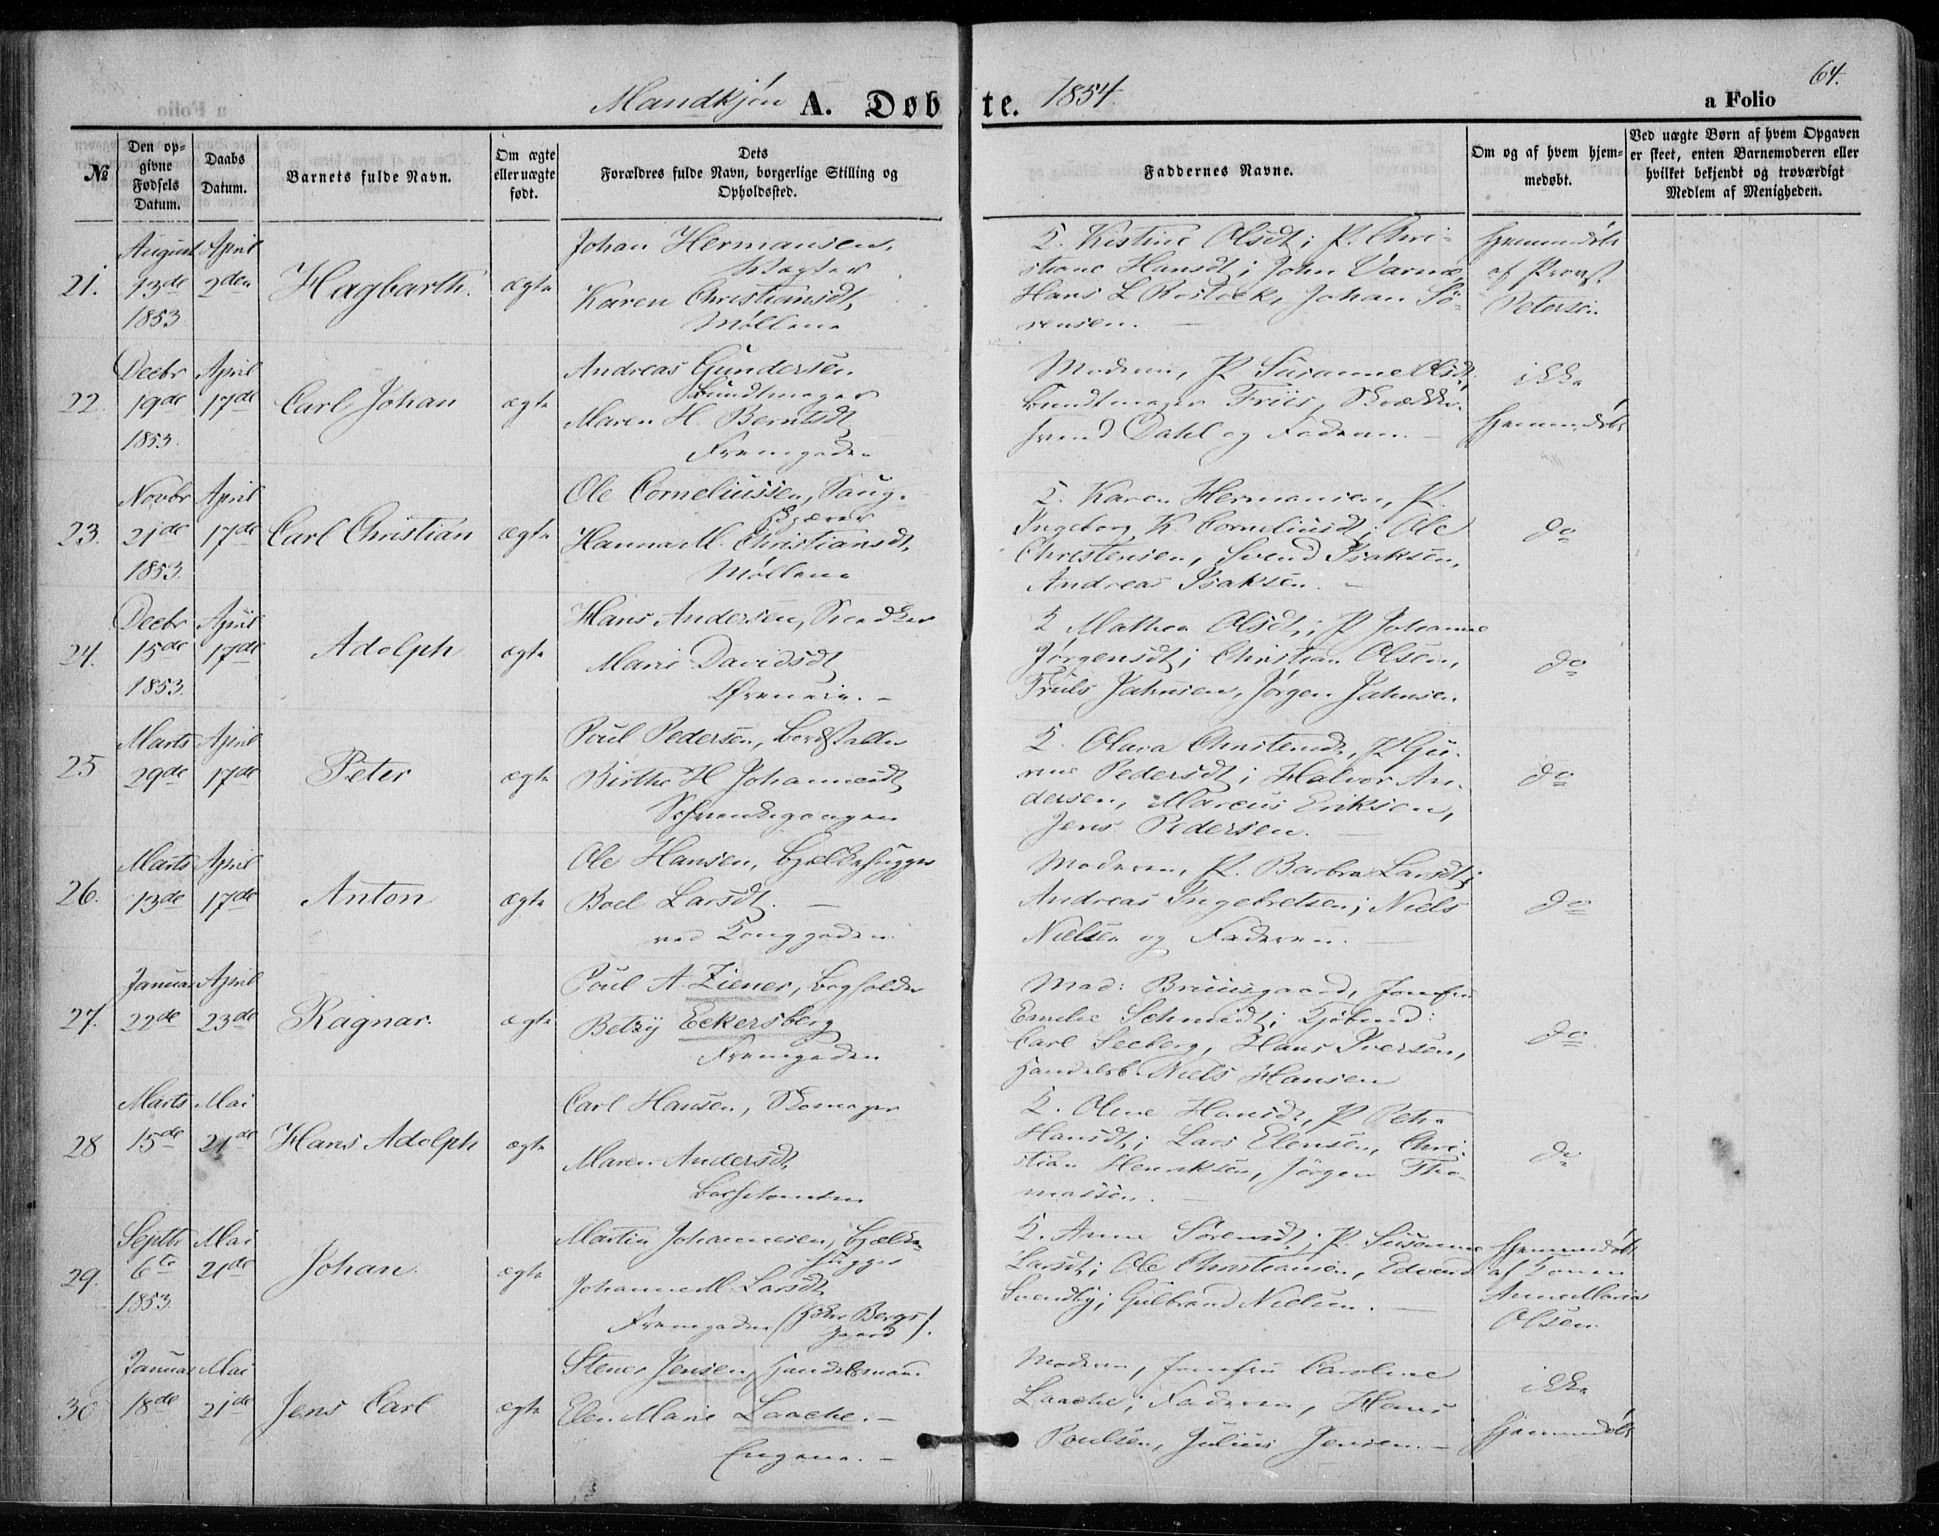 Mandkjön A. Døbte. 1854.
64.
a Folio
№
Den opgivne Fødsels Datum.
Daabs Datum.
Barnets fulde Navn.
Om ægte eller uægte født.
Dets Forældres fulde Navn, borgerlige Stilling og Opholdssted.
Faddernes Navne.
Om og af hvem hjemmedøbt.
Ved uægte Børn af hvem Opgaven er skeet, enten Barnemoderen eller hvilket bekjendt og troværdigt Medlem af Menigheden.
21.
August 13de 1853
April 2den
Hagbarth.
ægte
Johan Hermansen,
Vægter
Karen Christiansdt,
Møllene
K. Kistine Olsdt; P. Chri-
stiane Hansdt; John Varnæ,
Hans L Rostock, Johan Sö-
rensen. —
Hjemmedöbt
af Provst
Peterson
22.
Decbr 19de 1853.
April 17de
Carl Johan
ægte
Andreas Gundersen
Bundtmager
Maren H. Berntsdt
Fremgaden
Moderen, P. Susanne Olsdt,
Bundtmager Friis, Skrædder-
svend Dahl og Faderen. —
ikke
Hjemmedöbt
23.
Novbr 21de 1853.
April 17de
Carl Christian
ægte
Ole Corneliussen, Saug-
skjærer
Hanna M. Christiansdt,
Møllene
K. Karen Hermansen, P.
Ingeborg K. Corneliusdt; Ole
Christensen, Svend Isaksen,
Andreas Isaksen. —
do
24.
Decbr 15de 1853.
April 17de
Adolph
ægte
Hans Andersen, Snedker
Marie Davidsdt
Øreneie. —
K Mathea Olsdt; P Johanne
Jørgensdt; Christian Olsen,
Truls Jahnsen, Jørgen Jahnsen.
do
25
Marts 29de
April 17de
Peter
ægte
Poul Pedersen, Bordstabler
Birthe H Johannesdt
Schwenckegangen
K. Olava Christensdt, P Gu-
rine Pedersdt; Halvor An-
dersen, Marcus Eriksen,
Jens Pedersen. —
do
26.
Marts 13de
April 17de
Anton
ægte
Ole Hansen, Bjælkehugger
Boel Larsdt. —
ved Konggaden
Moderen, P. Barbra Larsdt;
Andreas Ingebretsen; Niels
Nielsen og Faderen. —
do
27.
Januar 22de
April 23de
Ragnar.
ægte
Poul A. Ziener, Bogholder
Betzÿ Eckersberg
Fremgaden
Mad: Bruusgaard, Jomfru
Emelie Schmidt; Kjöbmd:
Carl Seeberg, Hans Iversen,
Handelsb. Niels Hansen
do
28
Marts 15de
Mai 21de
Hans Adolph
ægte
Carl Hansen, Skomager
Maren Andersdt,
K. Oline Hansdt, P Petra
Hansdt; Lars Elensen, Chri-
stian Henriksen, Jörgen Tho-
massen. —
do
29.
Septbr 6te 1853.
Mai 21de
Johan.
ægte
Martin Johannesen, Bjælke-
hugger
Johanne M. Larsdt,
Fremgaden
K. Anne Sörensdt; P. Susanne
Larsdt; Ole Christiansen, Edvend
Svendby; Gulbrand Nielsen. —
Hjemmedöbt
af Konen
Anne Maria
Olsen.
30
Januar 18de
Mai 21de
Jens Carl
ægte
Stener Jensen, Handelsmand
Elen Marie Laache. —
Engene. —
Moderen, Jomfru Caroline
Laache; Faderen, Hans
Poulsen, Julius Jensen. —
ikke
Hjemmedöbt